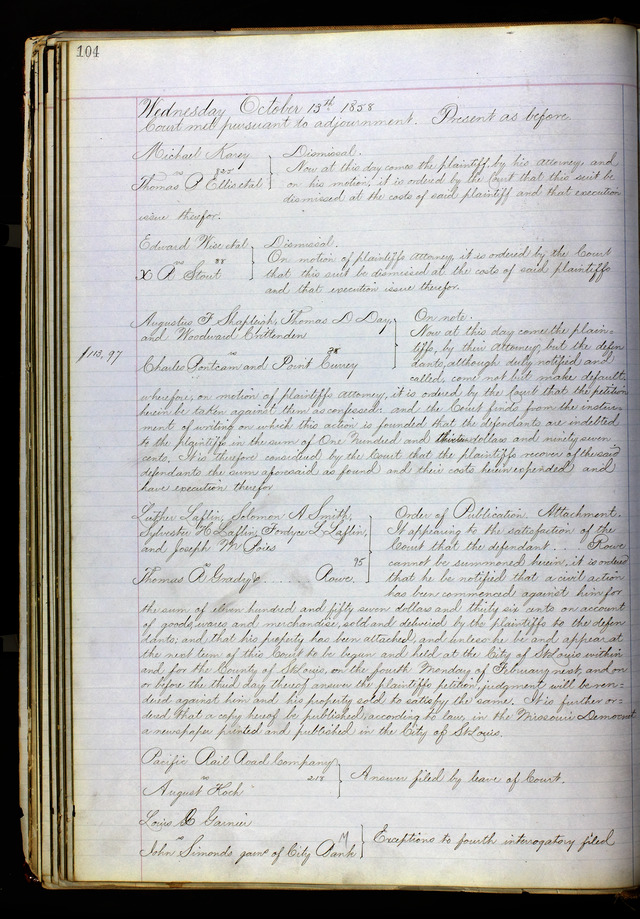 104
Wednesday October 13th 1858
Court met pursuant to adjournment. Present as before.
Michael Karey
vs
Thomas P Ellis etal
Dismissal.
Now at this day comes the plaintiff by his attorney, and
on his motion, it is ordered by the Court that this suit be
dismissed at the costs of said plaintiff and that execution
issue therefor.
Edward Wise etal
vs 88
R Stout
Dismissal.
On motion of plaintiffs attorney, it is ordered by the Court
that this suit be dismissed at the costs of said plaintiffs
and that execution issue therefor.
Augustus F. Shapleigh, Thomas D Day,
and Woodward Crittenden
vs 38
Charles Pontcam and Point Currey
On note.
Now at this day comes the plain-
$113.97
tiffs, by their attorney, but the defen
dants, although duly notified and
called, come not but make default.
wherefore, on motion of plaintiffs attorney, it is ordered by the Court that the petition
herein be taken against them as confessed: and the Court finds from the instru-
ment of writing on which this action is founded that the defendants are indebted
to the plaintiffs in the sum of One Hundred and thirteen dollars and ninety seven
cents. It is therefore considered by the Court that the plaintiffs recover of the said
defendants the sum aforesaid as found and their costs herein expended and
have execution therefor
Luther Laflin, Solomon A. Smith,
Sylvester H. Laflin, Fordyce L Laflin,
and Joseph M Poies
vs 95
Thomas R Grady & ....... Rowe.
Order of Publication. Attachment.
It appearing to the satisfaction of the
Court that the defendant .... Rowe
cannot be summoned herein, it is ordered
that he be notified that a civil action
has been commenced against him for
the sum of eleven hundred and fifty seven dollars and thirty six cents on account
of goods, wares and merchandise, sold and delivered by the plaintiffs to the defen
dants; and that his property has been attached, and unless he be and appear at
the next term of this Court to be begun and held at the City of St Louis within
and for the County of St Louis, on the fourth Monday of February next, and on
or before the third day thereof answer the plaintiffs petition, judgment will be ren-
dered against him and his property sold to satisfy the same. It is further or-
dered that a copy hereof be published, according to law, in the Missouri Democrat
a newspaper printed and published in the City of St Louis.
Pacific Rail Road Company
vs 218
August Koch
Answer filed by leave of Court.
Louis C Garnier
vs
John Simonds garne of City Bank
Exceptions to fourth interrogatory filed